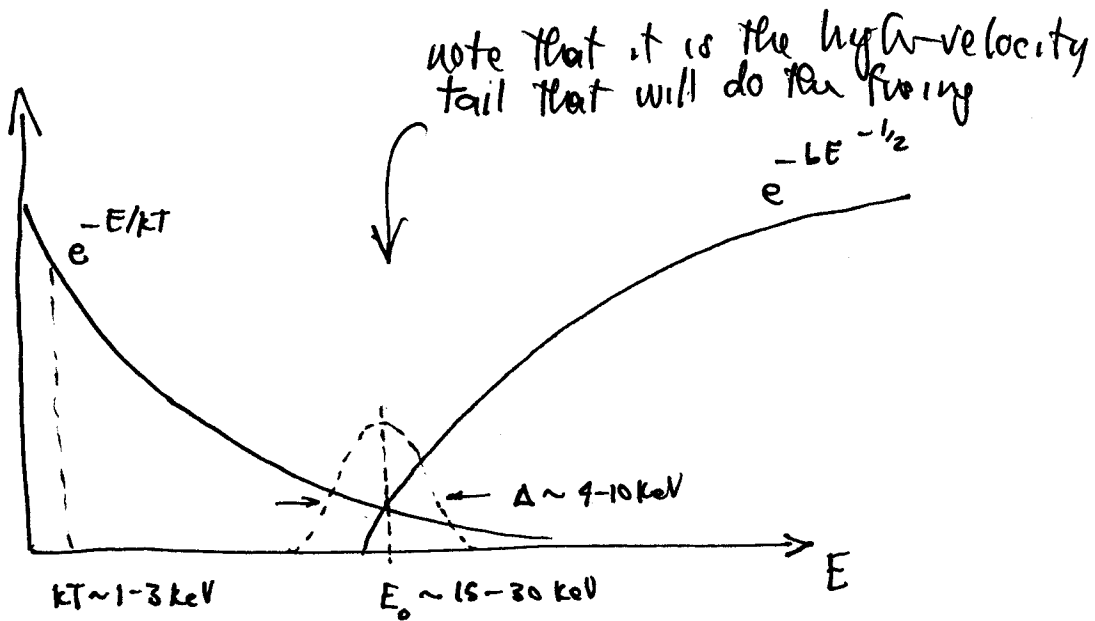 note that it is the high-velocity
tail that will do the fusing
e^-bE^-1/2
e^-E/kT
Δ ~ 4-10 keV
E
kT ~ 1-3 keV
E₀ ~ 15-30 keV